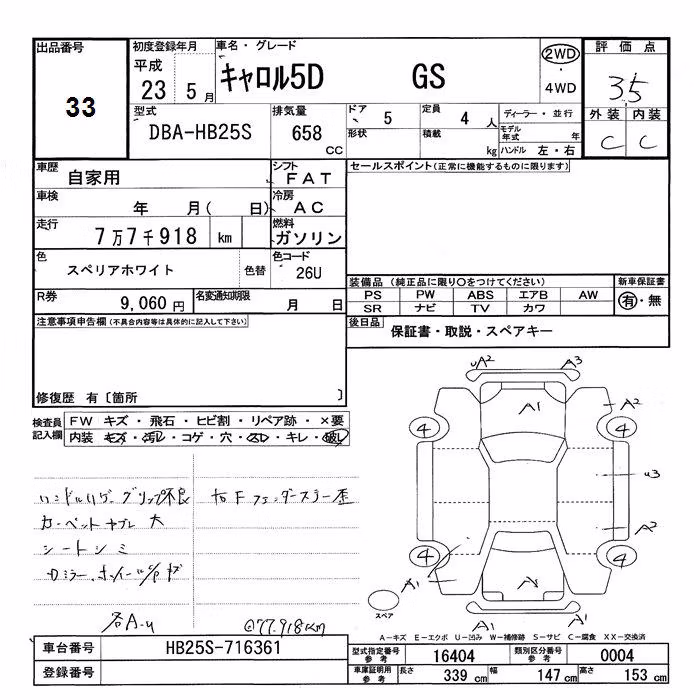 出品番号 初度登録年月 車名・グレード 評価点
33
平成 23 5月 キャロル5D GS 2WD・4WD 3.5
型式 排気量 ドア 定員 ディーラー・並行 外装 内装
DBA-HB25S 658 CC 5 4人 モデル年式 年 C C
形状 積載 kg ハンドル 左・右
車歴 自家用 シフト FAT セールスポイント(正常に機能するものに限ります)
車検 年 月( 日) 冷房 AC
走行 7万7千918 km 燃料 ガソリン
色 スペリアホワイト 色替 色コード 26U
装備品(純正品に限り○をつけてください) 新車保証書
PS PW ABS エアB AW 有・無
SR ナビ TV カワ
R券 9,060円 名変通知期限 月 日
後日品 保証書・取説・スペアキー
注意事項申告欄(不具合内容等は具体的に記入して下さい)
修復歴 有〔箇所 〕
検査員記入欄 FW キズ・飛石・ヒビ割・リペア跡・×要
内装 キズ・汚レ・コゲ・穴・スレ・キレ・破レ
uA2 A3
A1 A2
4 4
u3
A2
4 4
A1 A1
A1 A1
スペア
グリップ不良 右Fフェンダーステー歪
カーペット 大
シートシミ
各A-u @77.918km
A-キズ E-エクボ U-凹み W-補修跡 S-サビ C-腐食 XX-交換済
車台番号 HB25S-716361
型式指定番号 参考 16404 類別区分番号 参考 0004
登録番号
車庫証明用 参考 長さ 339cm 幅 147cm 高さ 153cm